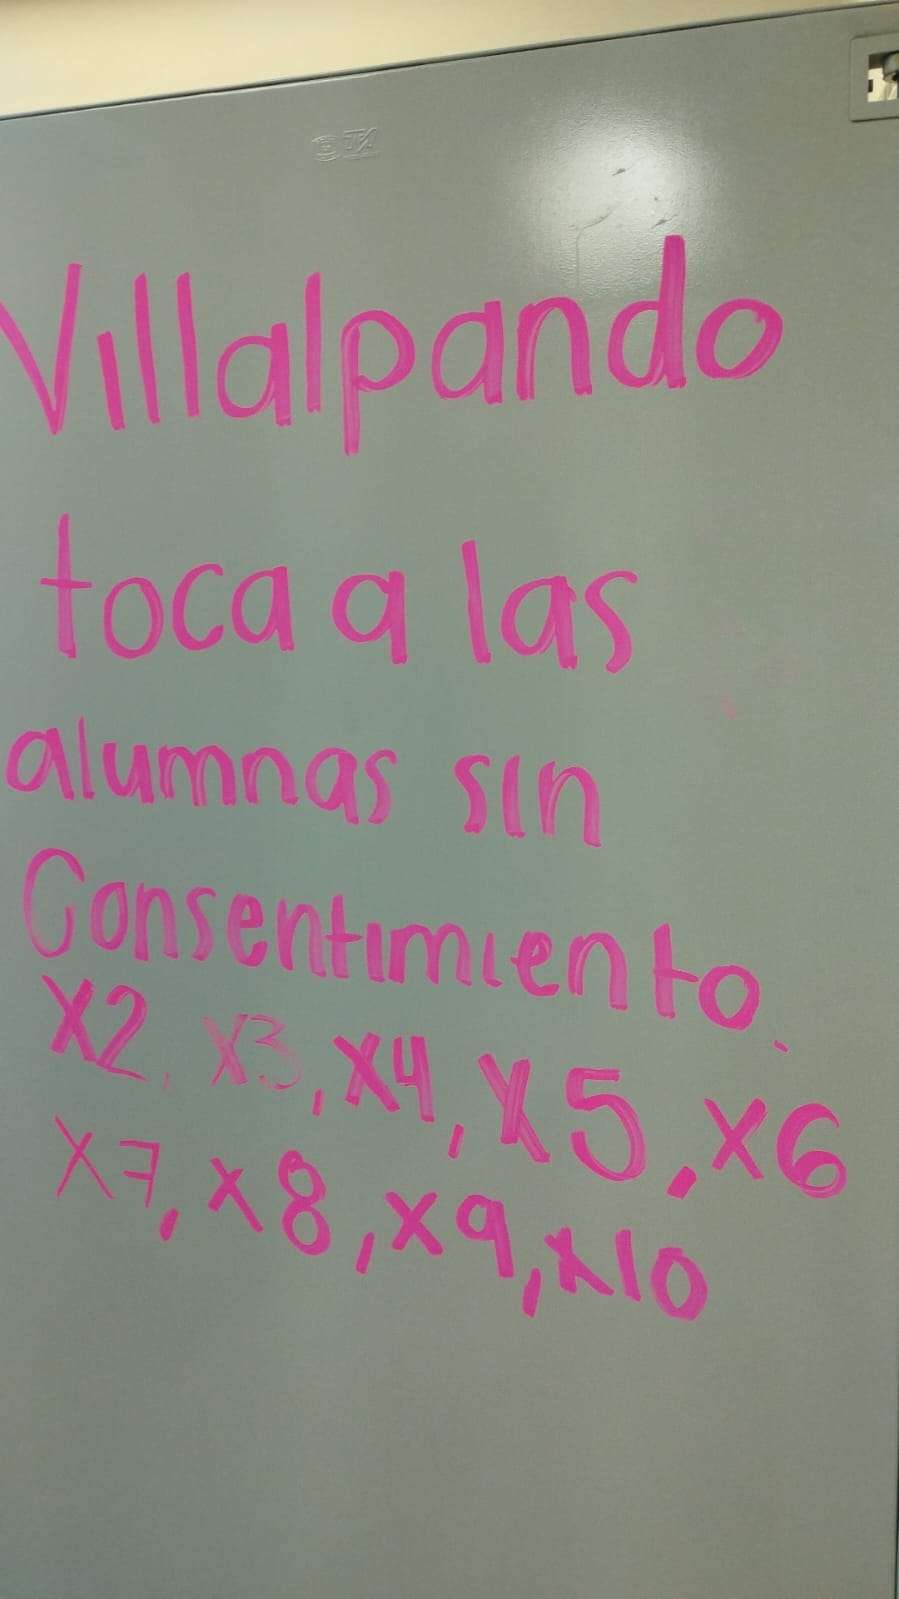 Villalpando
toca a las
alumnas sin
Consentimiento.
X2, X3, X4, X5, X6
X7, X8, X9, X10